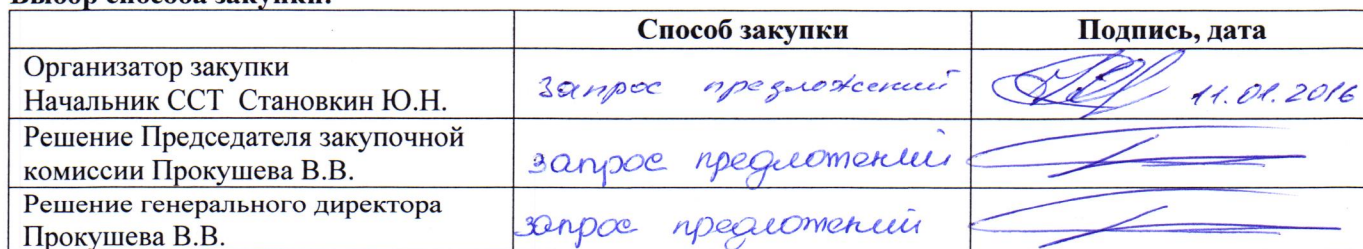 Выбор способа закупки:
Способ закупки Подпись, дата
Организатор закупки
Начальник ССТ Становкин Ю.Н. запрос предложений 11.01.2016
Решение Председателя закупочной
комиссии Прокушева В.В. запрос предложений
Решение генерального директора
Прокушева В.В. запрос предложений